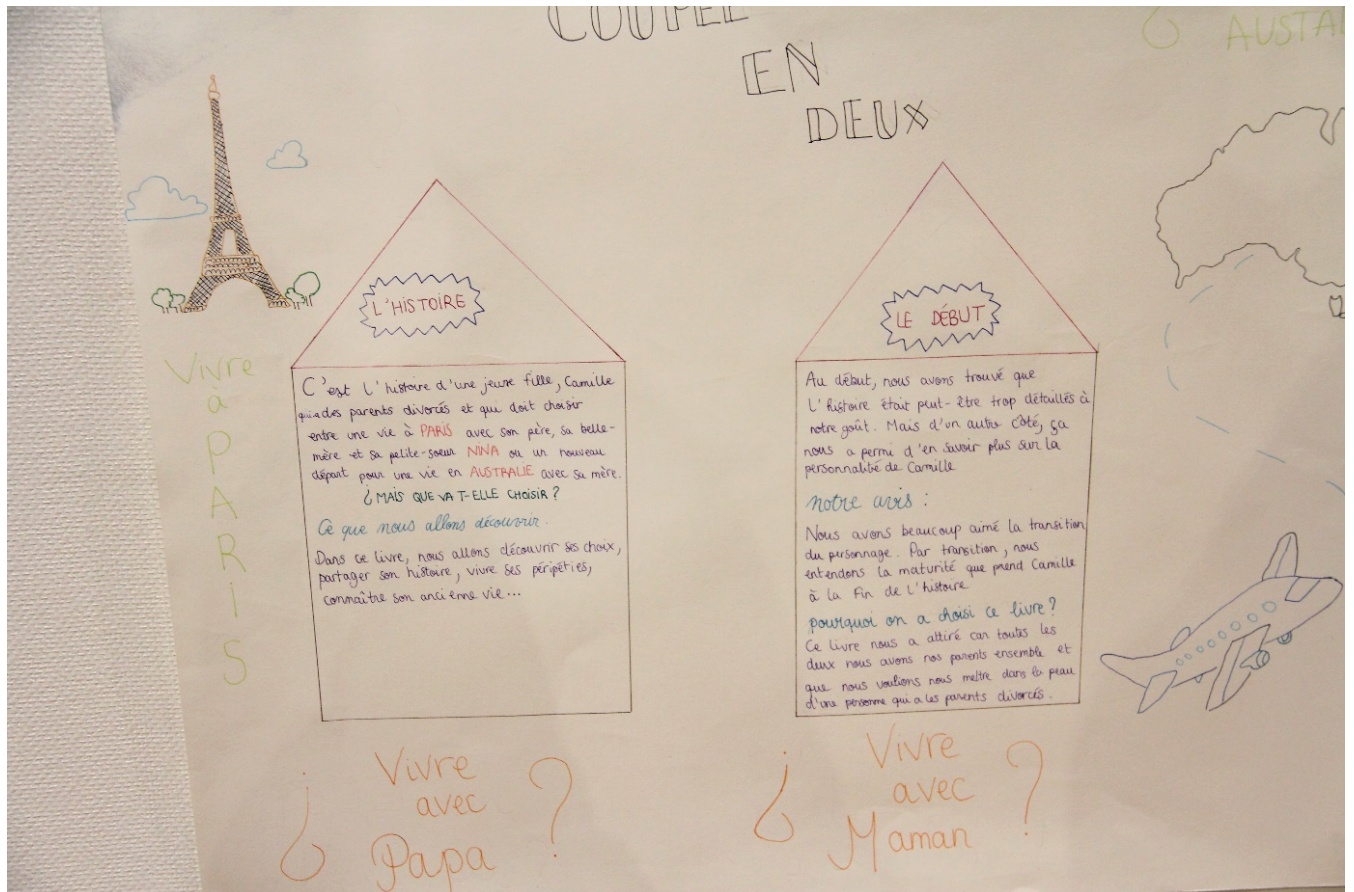 COUPÉE
EN
DEUX
¿ AUSTAL
Vivre
à
P
A
R
I
S
L'HISTOIRE
C'est l'histoire d'une jeune fille, Camille
qui a des parents divorcés et qui doit choisir
entre une vie à PARIS avec son père, sa belle-
mère et sa petite-soeur NINA ou un nouveau
départ pour une vie en AUSTRALIE avec sa mère.
¿ MAIS QUE VA T-ELLE CHOISIR ?
Ce que nous allons découvrir.
Dans ce livre, nous allons découvrir ses choix,
partager son histoire, vivre ses péripéties,
connaître son ancienne vie...
LE DÉBUT
Au début, nous avons trouvé que
l'histoire était peut-être trop détaillés à
notre goût. Mais d'un autre côté, ça
nous a permi d'en savoir plus sur la
personnalité de Camille
notre avis :
Nous avons beaucoup aimé la transition
du personnage. Par transition, nous
entendons la maturité que prend Camille
à la fin de l'histoire
pourquoi on a choisi ce livre ?
Ce livre nous a attiré car toutes les
deux nous avons nos parents ensemble et
que nous voulions nous mettre dans la peau
d'une personne qui a les parents divorcés.
¿ Vivre
avec
Papa ?
¿ Vivre
avec
Maman ?